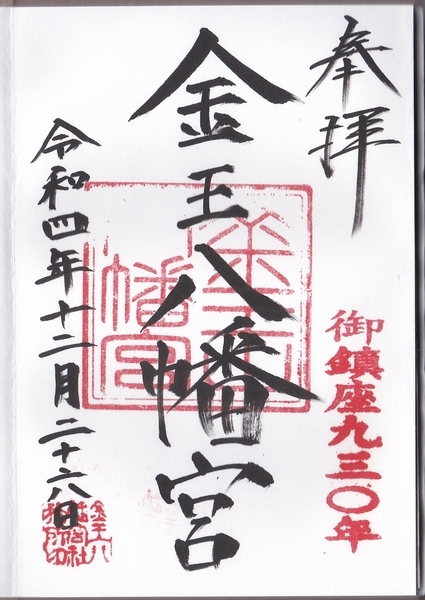 奉拝
御鎮座九三〇年
金王八幡宮
令和四年十二月二十六日
金王八
幡宮社
務所印